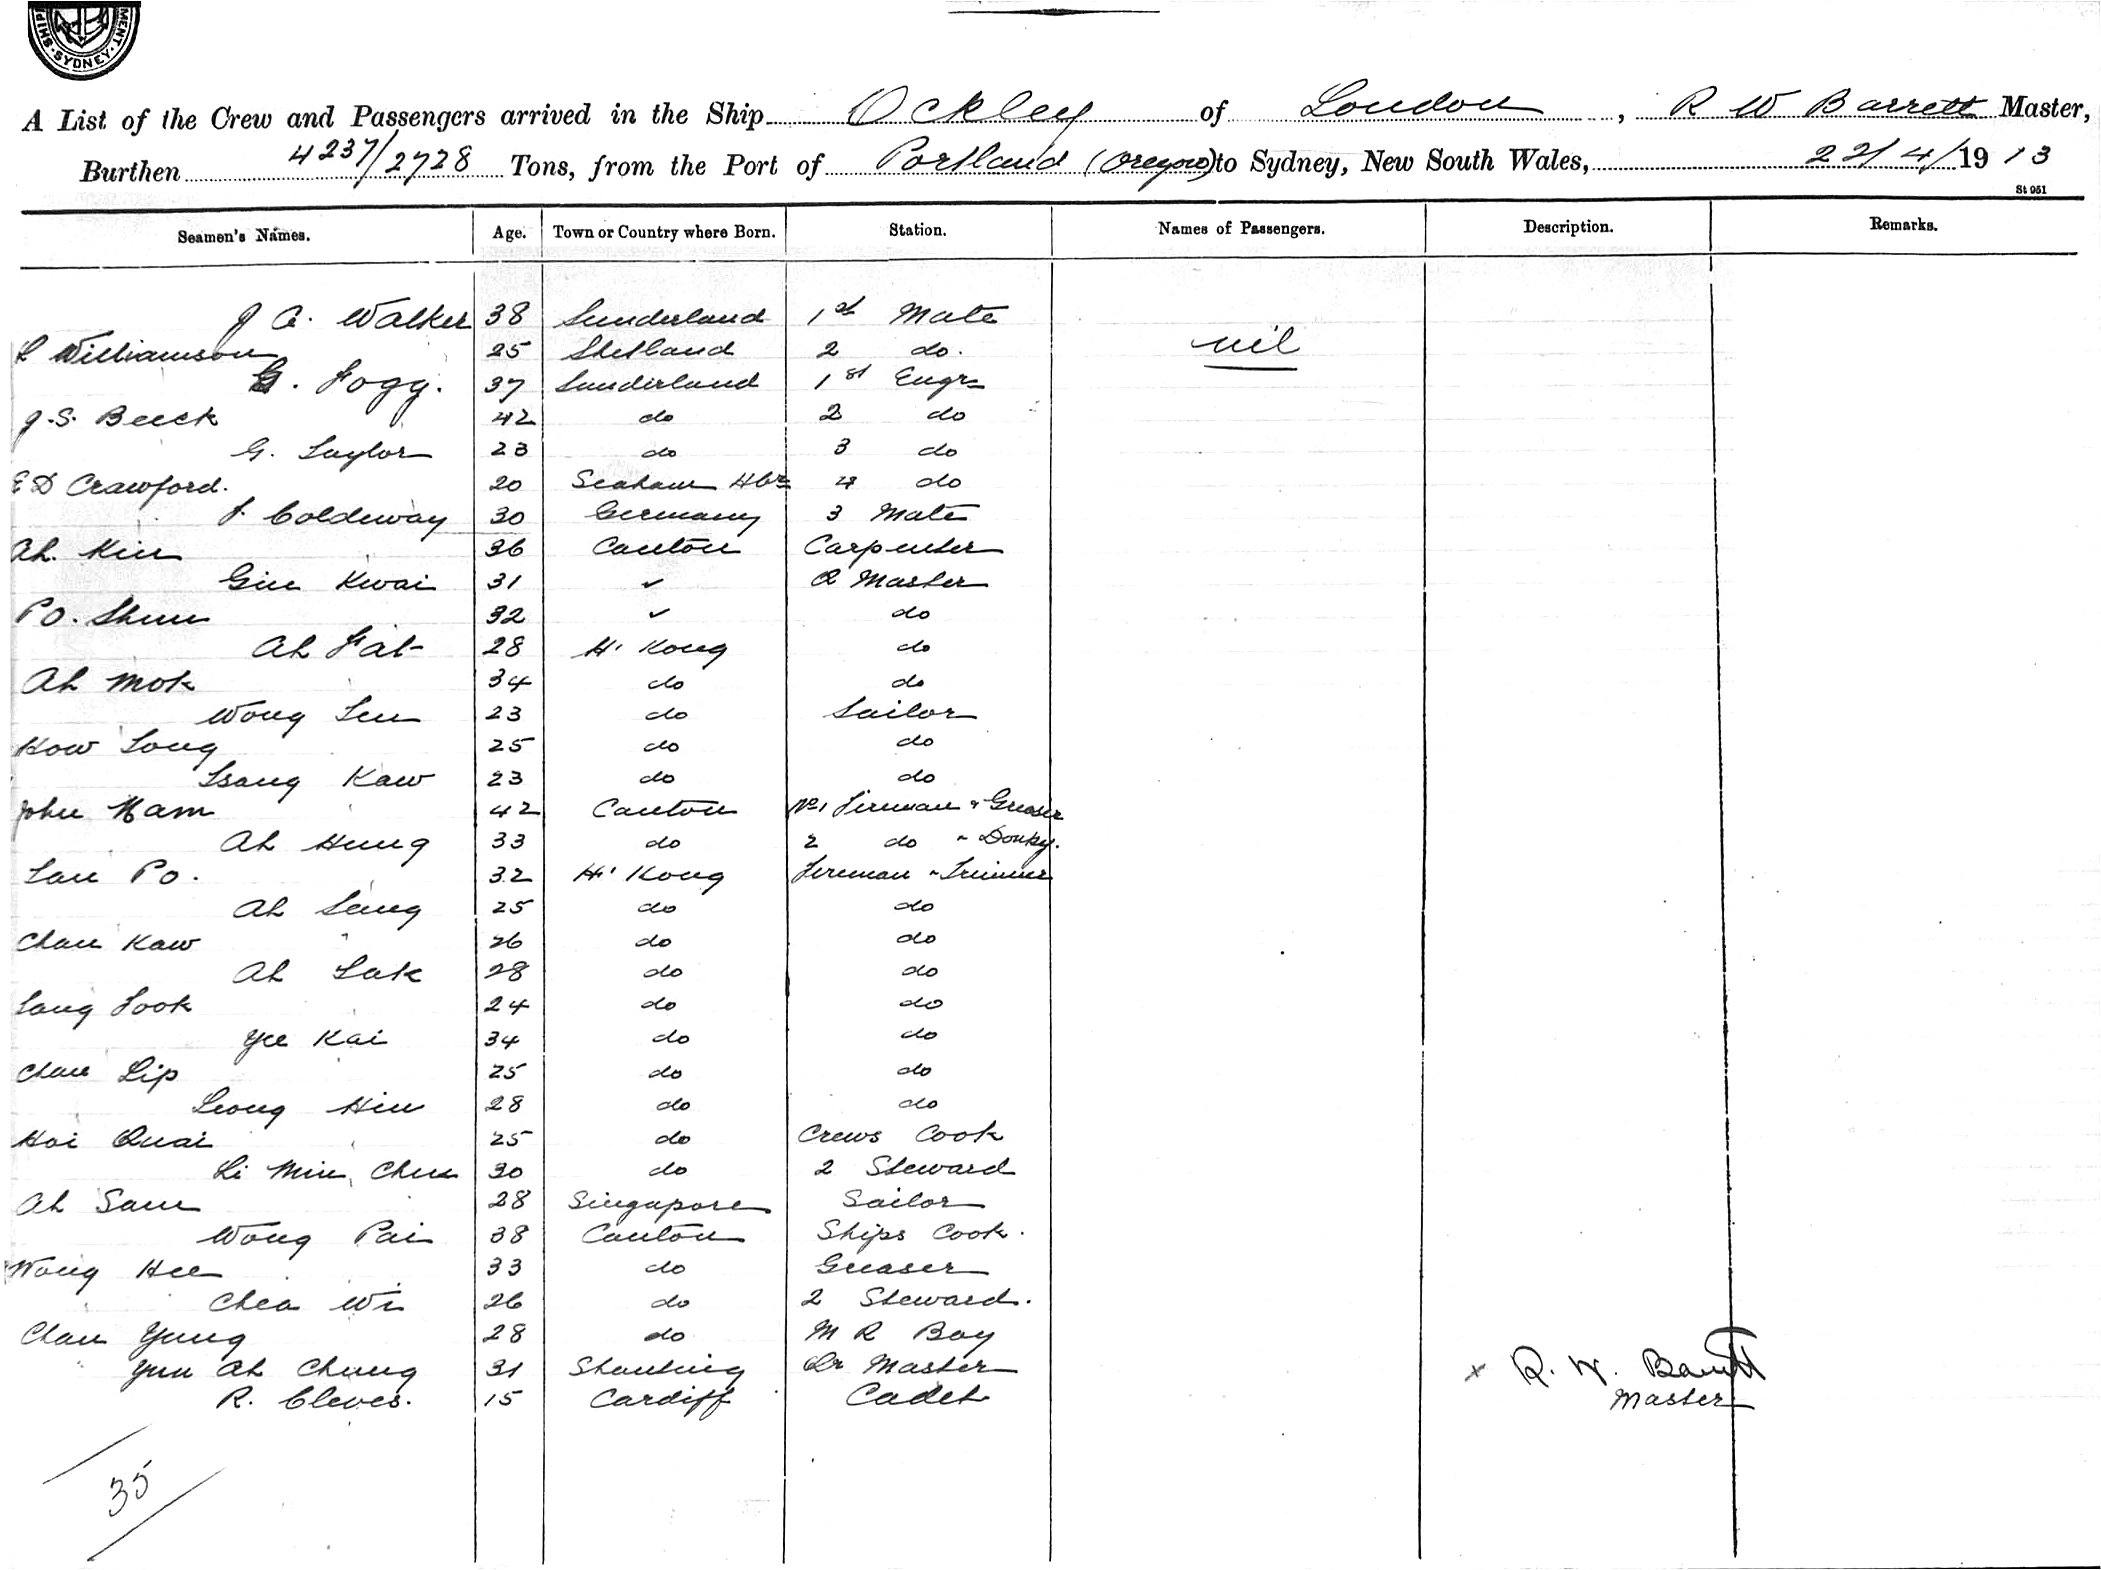 SHIP MENT. SYDNEY.
A List of the Crew and Passengers arrived in the Ship Ockley of London, R W Barrett Master,
Burthen 4237/2728 Tons, from the Port of Portland (Oregon) to Sydney, New South Wales, 22/4/1913
St 951
Seamen's Names. Age. Town or Country where Born. Station. Names of Passengers. Description. Remarks.
J A. Walker 38 Sunderland 1st Mate
L Williamson 25 Shetland 2 do. nil
G. Fogg. 37 Sunderland 1st Engr
J. S. Beeck 42 do 2 do
G. Taylor 23 do 3 do
E D Crawford. 20 Seaham Hbr 4 do
J. Coldeway 30 Germany 3 Mate
Ah. Kin 36 Canton Carpenter
Gin Kwai 31 ✓ Q Master
Po. Shun 32 ✓ do
Ah Fat 28 H. Kong do
Ah Mok 34 do do
Wong Sen 23 do Sailor
How Song 25 do do
Tsang Kaw 23 do do
John Nam 42 Canton No 1 Fireman & Greaser
Ah Hung 33 do 2 do ~ Donky.
Lau Po. 32 H. Kong Fireman ~ Trimmer
Ah Seung 25 do do
Chan Kaw 26 do do
Ah Tak 28 do do
Tang Fook 24 do do
Yee Kai 34 do do
Chan Lip 25 do do
Leong Hin 28 do do
Hoi Quai 25 do Crews Cook
Li Min Chun 30 do 2 Steward
Ah Sam 28 Singapore Sailor
Wong Pai 38 Canton Ships Cook.
Wong Hee 33 do Greaser
Chea Wi 26 do 2 Steward.
Chan Yung 28 do M R Boy
Yun Ah Chung 31 Shanking Qr Master x R. W. Barrett
R. Cleves. 15 Cardiff Cadet Master
35